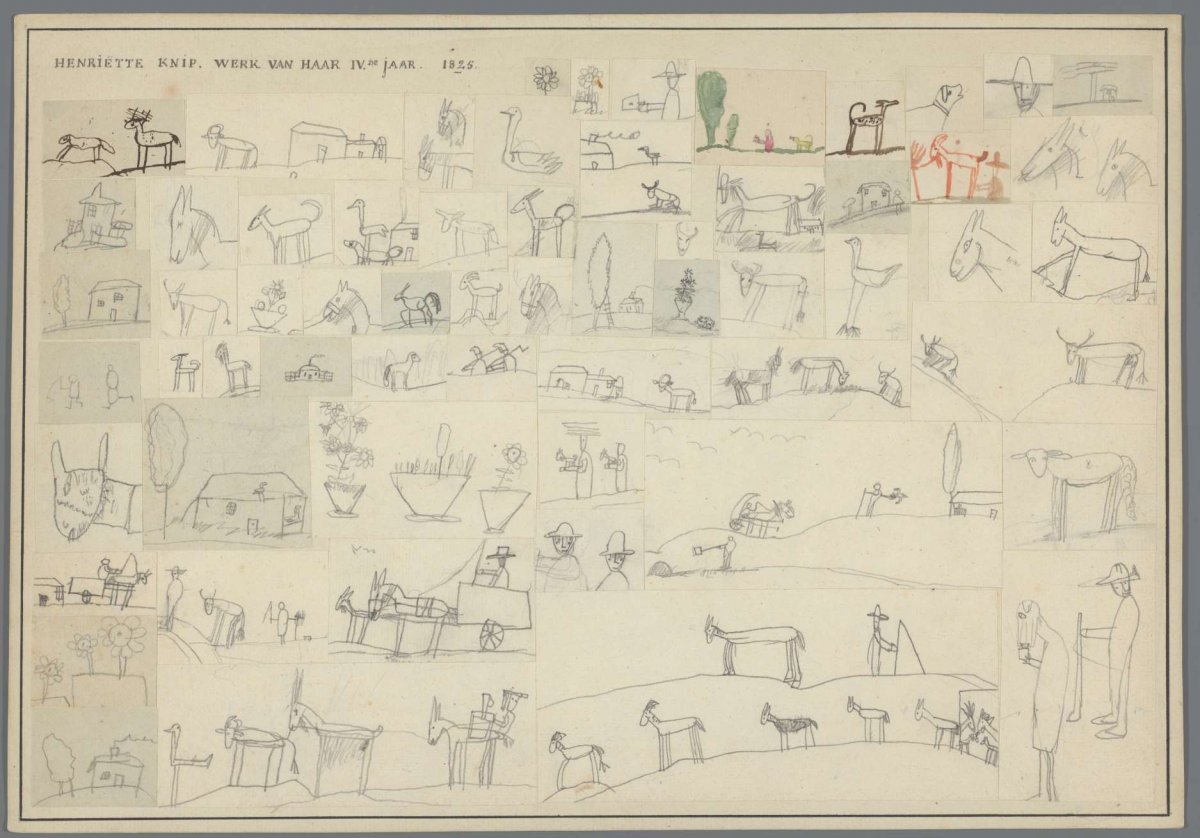 HENRIËTTE KNIP. WERK VAN HAAR IV.de JAAR. 1825.